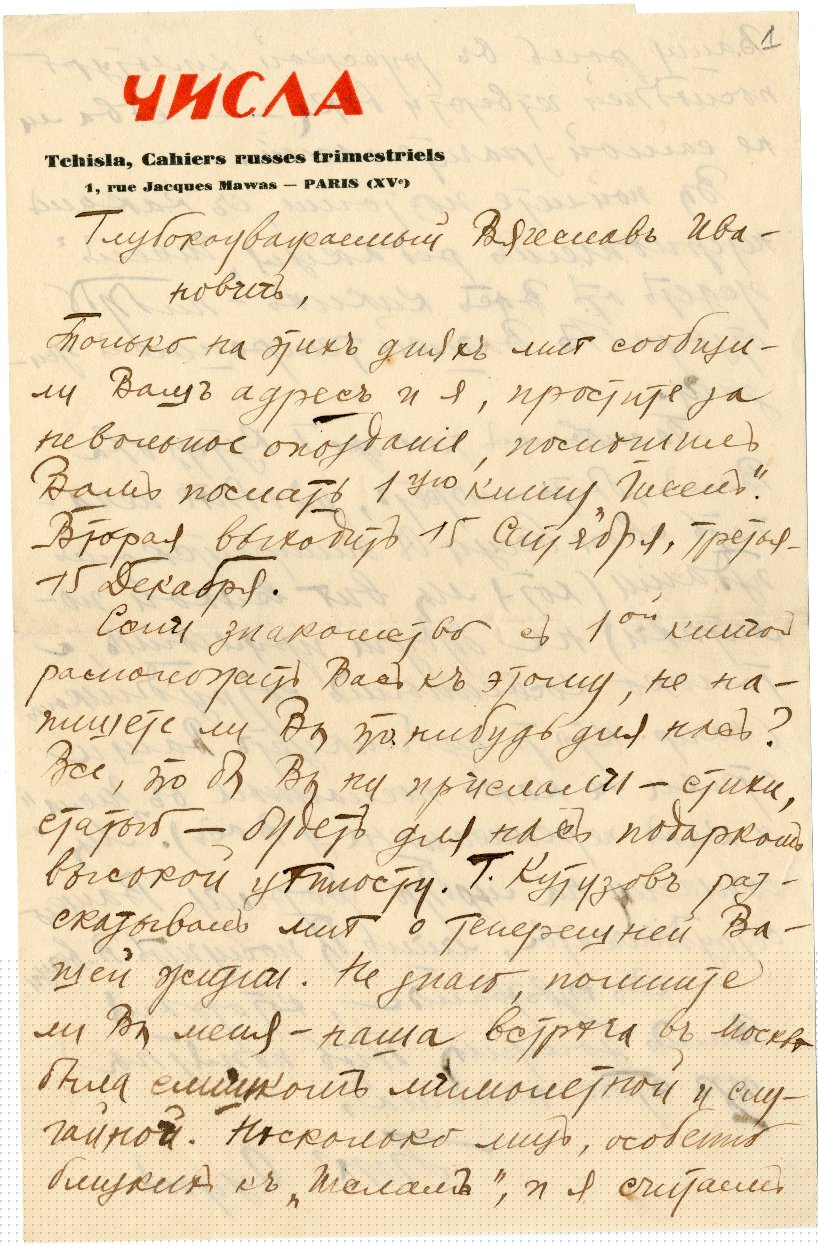 1
ЧИСЛА
Tchisla, Cahiers russes trimestriels
1, rue Jacques Mawas — PARIS (XVe)
Глубокоуважаемый Вячеславъ Ива-
новичъ,
Только на этихъ дняхъ мнѣ сообщи-
ли Вашъ адресъ и я, простите за
невольное опозданіе, поспѣшилъ
Вамъ послать 1ую книгу „Чиселъ".
Вторая выходитъ 15 Сентября, третья -
15 Декабря.
Если знакомство съ 1ой книгой
расположитъ Васъ къ этому, не на-
пишете ли Вы что нибудь для насъ?
Все, что бы Вы ни прислали — стихи,
статью — будетъ для насъ подаркомъ
высокой цѣнности. Г. Кутузовъ раз-
сказывалъ мнѣ о теперешней Ва-
шей жизни. Не знаю, помните
ли Вы меня — наша встрѣча въ Москвѣ
была слишкомъ мимолетной и слу-
чайной. Нѣсколько лицъ, особенно
близкихъ къ „Числамъ", и я считаемъ